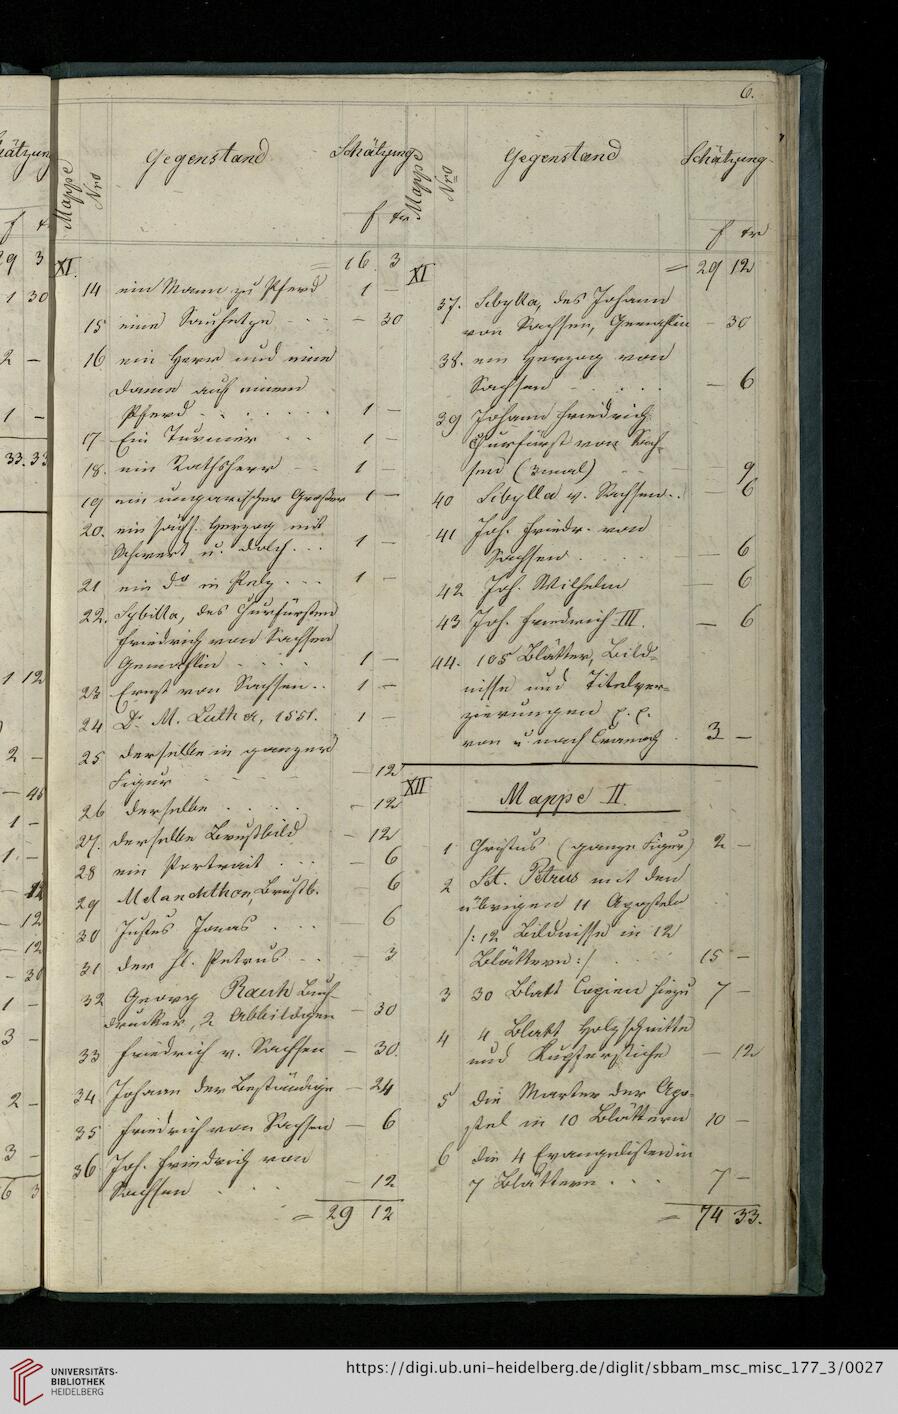 6.
Mappe Nro Gegenstand Schätzung
f xr
XI. = 16 3
14 ein Mann zu Pferd 1 –
15 eine Sauhetze - - – 30
16 ein Herr und eine
Dame auf einem
Pferd . . . . . . . 1 –
17 Ein Turnier . . 1 –
18. ein Rathsherr - - 1 –
19 ein ungarischer Großer 1 –
20. ein sächs. Herzog mit
Schwert u. Dolch . . . 1 –
21 ein do in Pelz . . . 1 –
22. Sybilla, des Churfürsten
Friedrich von Sachsen
Gemahlin . . . . 1 –
23 Ernst von Sachsen . . 1 –
24 Dr. M. Luther, 1551. 1 –
25 derselbe in ganzer
Figur - - - - – 12
26 derselbe . . . . – 12
27. derselbe Brustbild – 12
28 ein Portrait . . . – 6
29 Melanchthon, Brustb. – 6
30 Justus Jonas . . . – 6
31 der hl. Petrus - - – 3
32 Georg Rauh Buch-
drucker, 2 Abbildgen – 30
33 Friedrich v. Sachsen – 30.
34 Johann der Beständige – 24
35 Friedrich von Sachsen – 6
36 Joh. Friedrich von
Sachsen . . . – 12
= 29 12
Mappe Nro Gegenstand Schätzung
f xr
XI = 29 12
37. Sibylla, des Johann
von Sachsen, Gemahlin – 30
38. ein Herzog von
Sachsen - . . . . – 6
39 Johann Friedrich
Churfürst von Sach-
sen (3mal) - - – 9
40 Sibylla v. Sachsen . . – 6
41 Joh. Friedr. von
Sachsen . . . . – 6
42 Joh. Wilhelm – 6
43 Joh. Friedrich III. – 6
44. 105 Blätter, Bild-
nisse und Titelver-
zierungen p. p.
von u. nach Cranach . 3 –
XII Mappe II.
1 Christus (ganze Figur) 2 –
2 Sct. Petrus mit den
übrigen 11 Aposteln
/: 12 Bildnisse in 12
Blättern :/ . . . 15 –
3 30 Blatt Copien hiezu 7 –
4 4 Blatt Holzschnitte
und Kupferstiche – 12
5 die Marter der Apo-
stel in 10 Blättern 10 –
6 die 4 Evangelisten in
7 Blättern . . . 7 –
= 74 33.
UNIVERSITÄTS-
BIBLIOTHEK
HEIDELBERG
https://digi.ub.uni-heidelberg.de/diglit/sbbam_msc_misc_177_3/0027